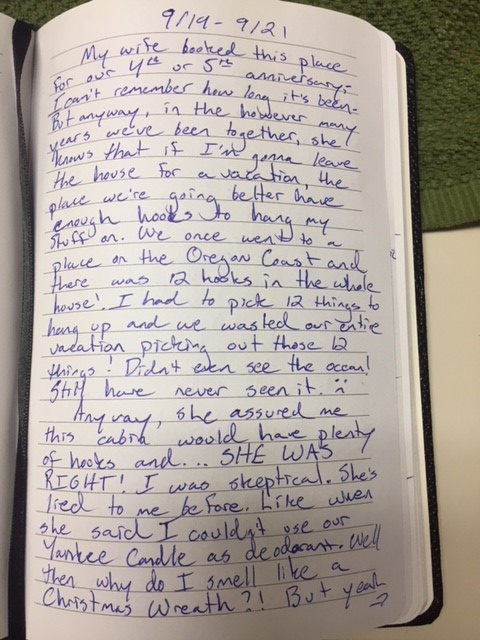 9/19 - 9/21
My wife booked this place
for our 4th or 5th anniversary,
I can't remember how long it's been.
But anyway, in the however many
years we've been together, she
knows that if I'm gonna leave
the house for a vacation, the
place we're going better have
enough hooks to hang my
stuff on. We once went to a
place on the Oregon Coast and
there was 12 hooks in the whole
house! I had to pick 12 things to
hang up and we wasted our entire
vacation picking out those 12
things! Didn't even see the ocean!
Still have never seen it. :(
Anyway, she assured me
this cabin would have plenty
of hooks and... SHE WAS
RIGHT! I was skeptical. She's
lied to me before. Like when
she said I couldn't use our
Yankee Candle as deodorant. Well
then why do I smell like a
Christmas Wreath?! But yeah
→